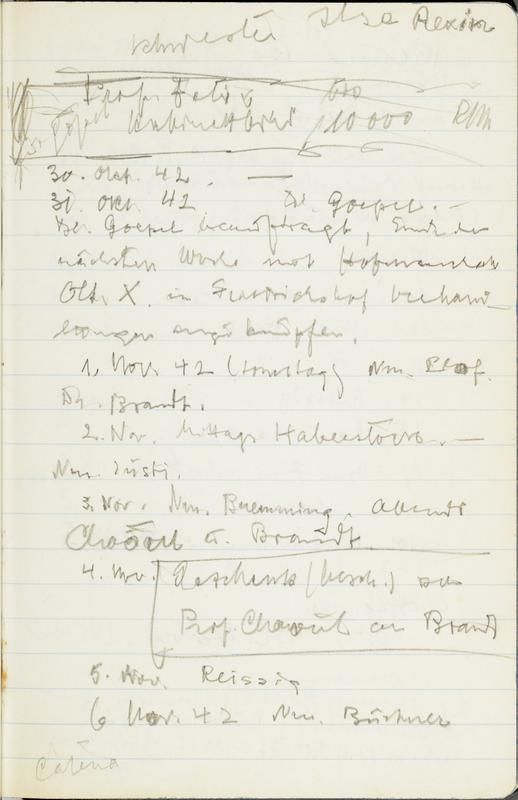 Ilse Rexin
Prof. Felix
Kabinettbild 10 000 RM
30. Okt. 42. —
31. Okt. 42 Dr. Goepel. —
Dr. Goepel beauftragt, Ende der
nächsten Woche mit
in Friedrichshof Verhand-
lungen anzuknüpfen.
1. Nov. 42 (Sonntag) Nm. Prof.
Dr. Brandt.
2. Nov. Mittags Haberstock. —
Nm. Justi.
3. Nov. Nm. Bremming. Abends
Chaoul u. Brandt
4. Nov. Geschenk (besch.) von
Prof. Chaoul an Brandt
5. Nov. Reissig
6 Nov. 42 Nm. Büchner